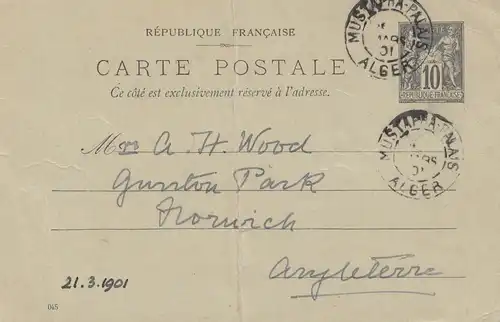 RÉPUBLIQUE FRANÇAISE
CARTE POSTALE
Ce côté est exclusivement réservé à l'adresse.
MUSTAPHA-PALAIS
MARS
01
ALGER
10
RÉPUBLIQUE FRANÇAISE
MUSTAPHA-PALAIS
MARS
01
ALGER
Mrs A. H. Wood
Gunton Park
Norwich
Angleterre
21.3.1901
045